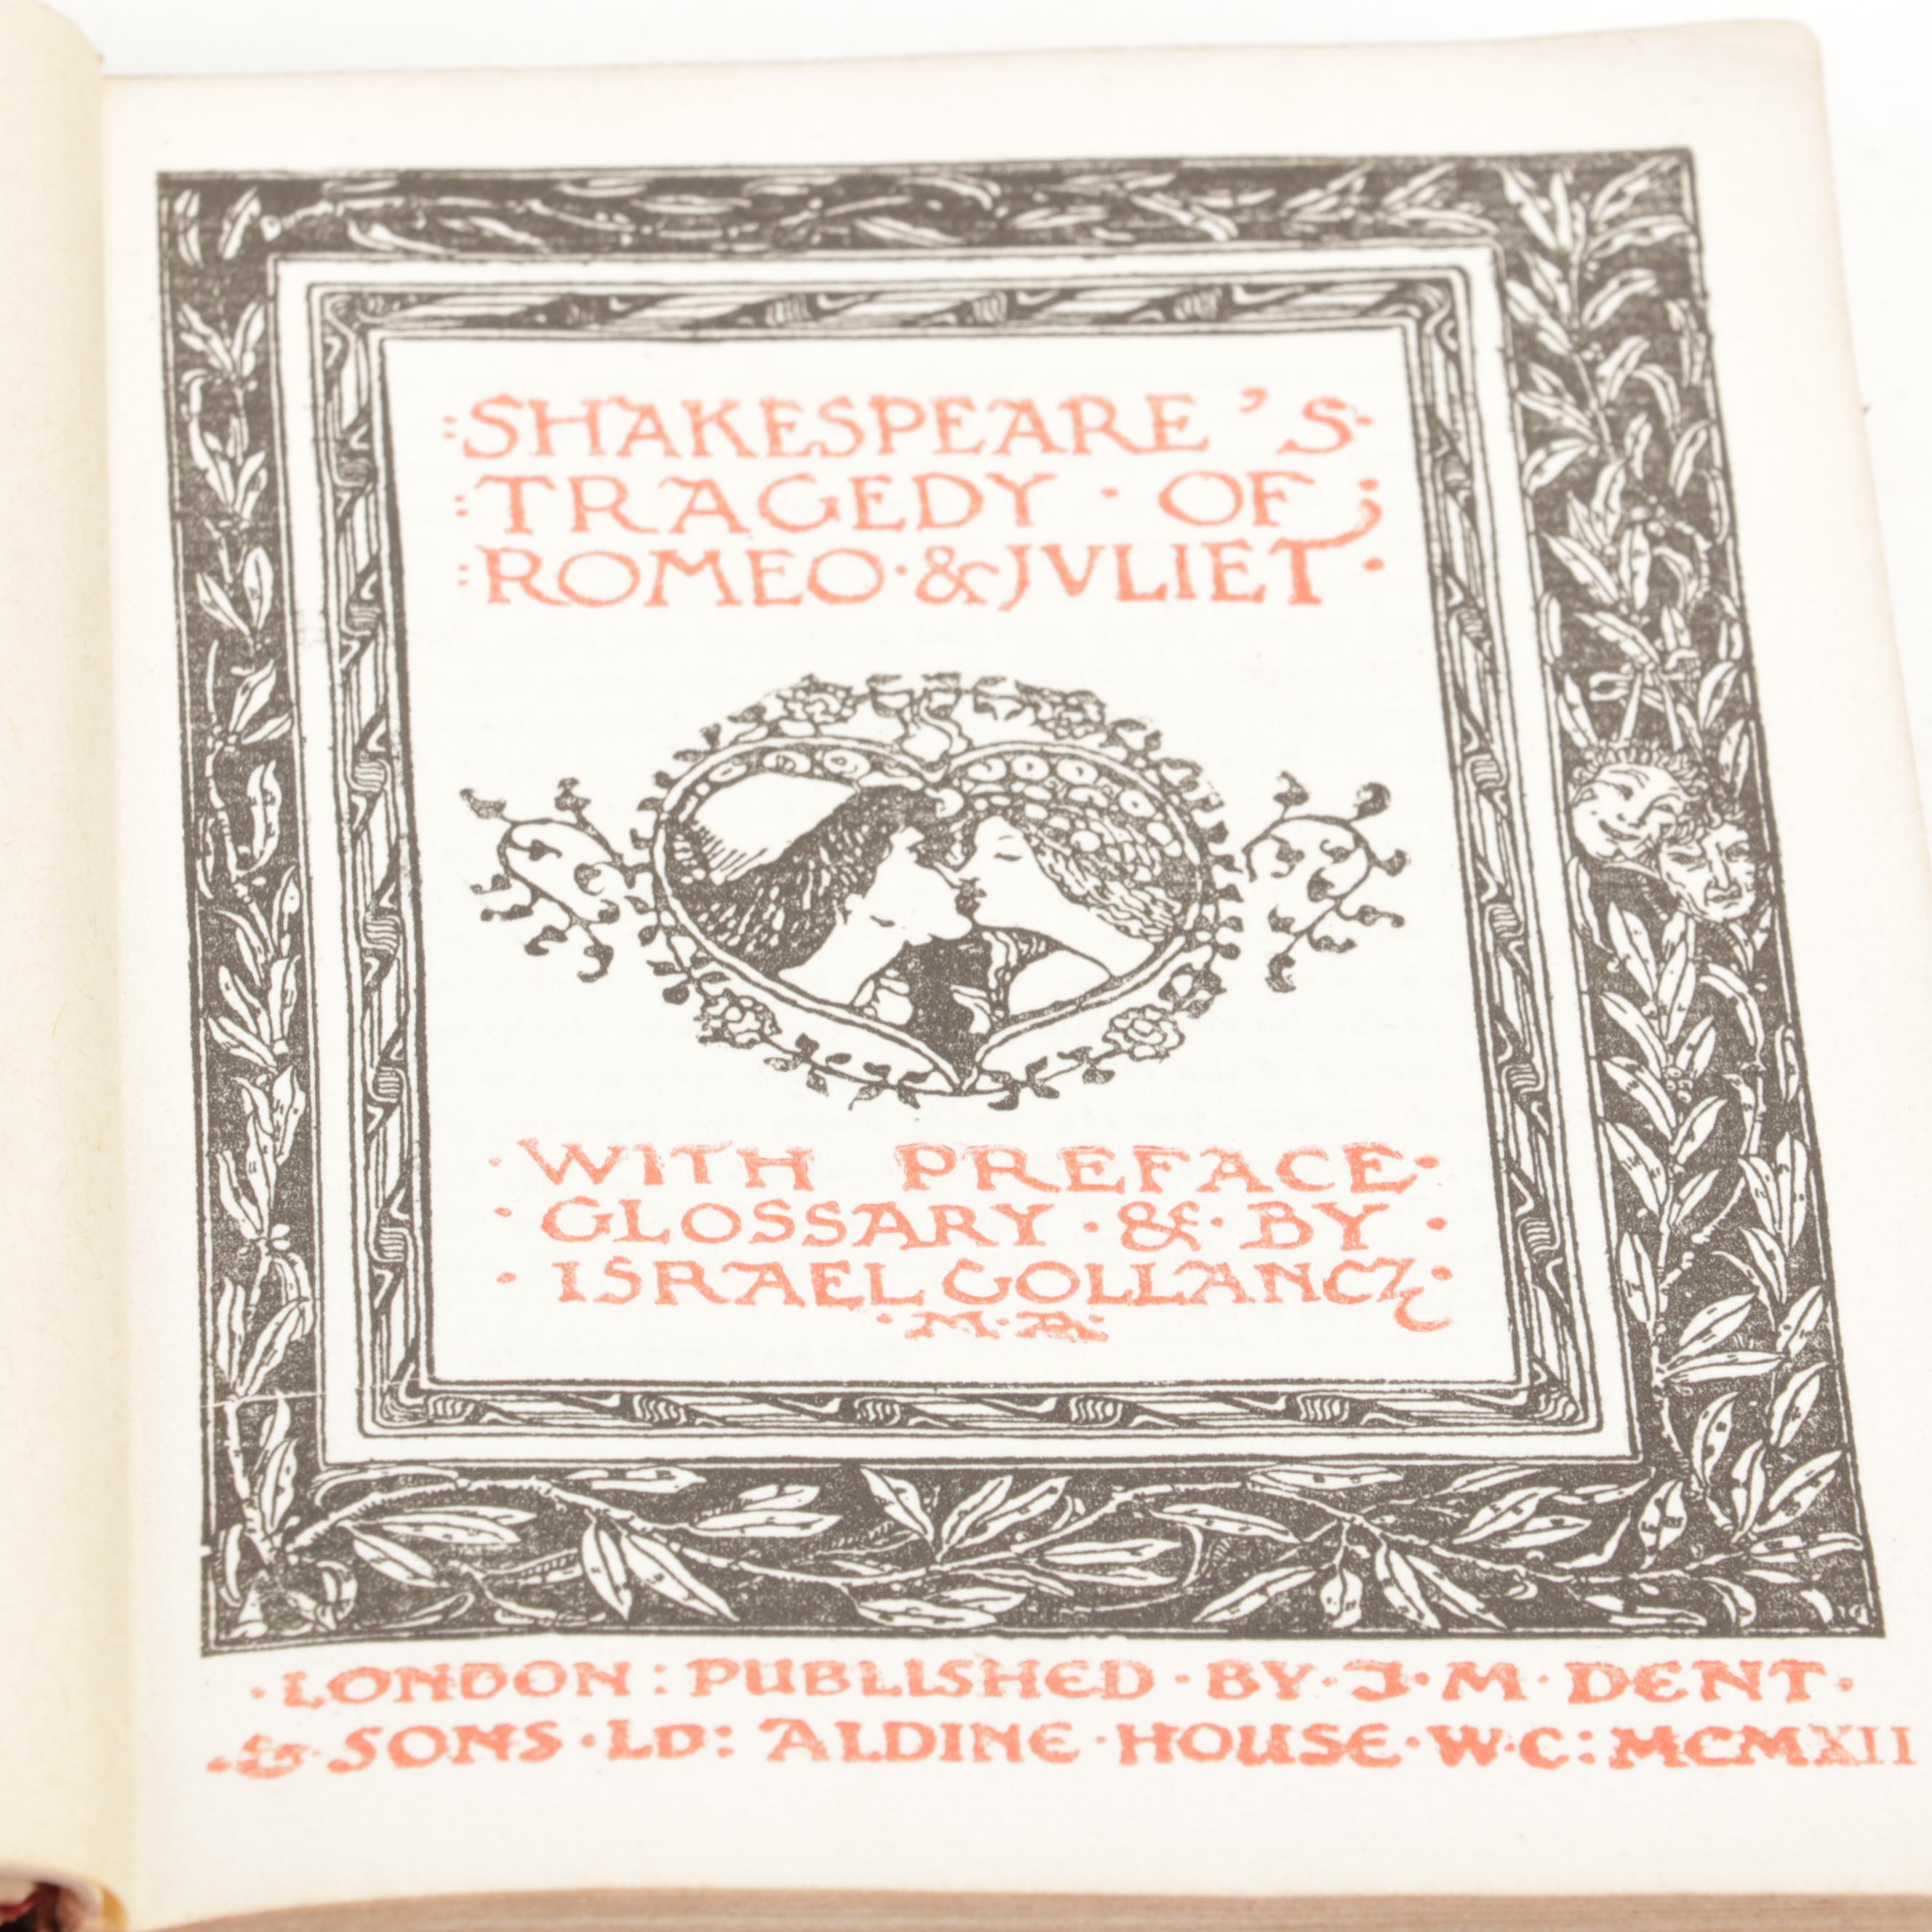 :SHAKESPEARE'S·
:TRAGEDY · OF;
:ROMEO·&JVLIET·
·WITH PREFACE·
·GLOSSARY·&·BY·
·ISRAEL GOLLANCZ·
·M·A·
·LONDON:PUBLISHED·BY·J·M·DENT·
·&·SONS·LD: ALDINE·HOUSE·W·C:MCMXII